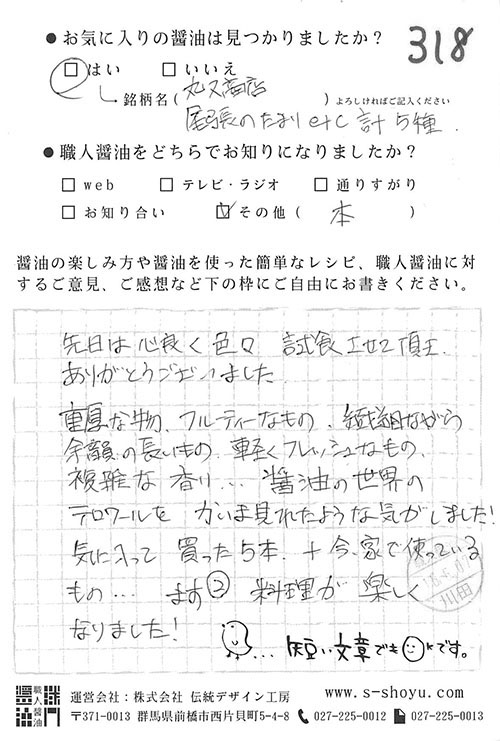 ● お気に入りの醤油は見つかりましたか？ 318
□はい □いいえ
銘柄名( 丸又商店 )よろしければご記入ください
尾張のたまり etc 計5種.
● 職人醤油をどちらでお知りになりましたか？
□web □テレビ・ラジオ □通りすがり
□お知り合い ☑その他( 本 )
醤油の楽しみ方や醤油を使った簡単なレシピ、職人醤油に対
するご意見、ご感想など下の枠にご自由にお書きください。
先日は心良く色々 試食させて頂き
ありがとうございました
重厚な物、フルーティーなもの、繊細ながら
余韻の長いもの、軽くフレッシュなもの、
複雑な香り... 醤油の世界の
テロワールを かいま見れたような気がしました!
気に入って 買った5本、+今、家で使っている
もの... ます② 料理が 楽しく
なりました!
...短い文章でもokです。
川田
職人醤油
運営会社：株式会社 伝統デザイン工房 www.s-shoyu.com
〒371-0013 群馬県前橋市西片貝町5-4-8 027-225-0012 027-225-0013